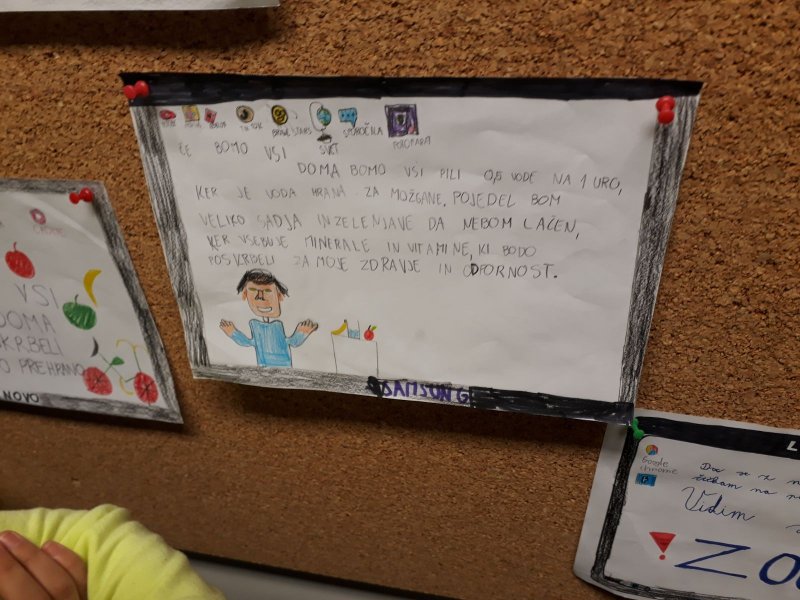 TIK TOK
BRAWL STARS
SVET
SPOROČILA
ČE BOMO VSI
DOMA BOMO VSI PILI 0,5 VODE NA 1 URO,
KER JE VODA HRANA ZA MOŽGANE, POJEDEL BOM
VELIKO SADJA IN ZELENJAVE DA NEBOM LAČEN,
KER VSEBUJE MINERALE IN VITAMINE, KI BODO
POSKRBELI ZA MOJE ZDRAVJE IN ODPORNOST.
SAMSUNG
VSI
DOMA
SKRBELI
O PREHRANO
NOVO
L
Google
chrome
Vidim
ZO